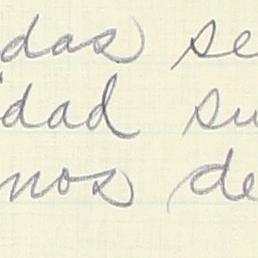 das se
idad su
nos de